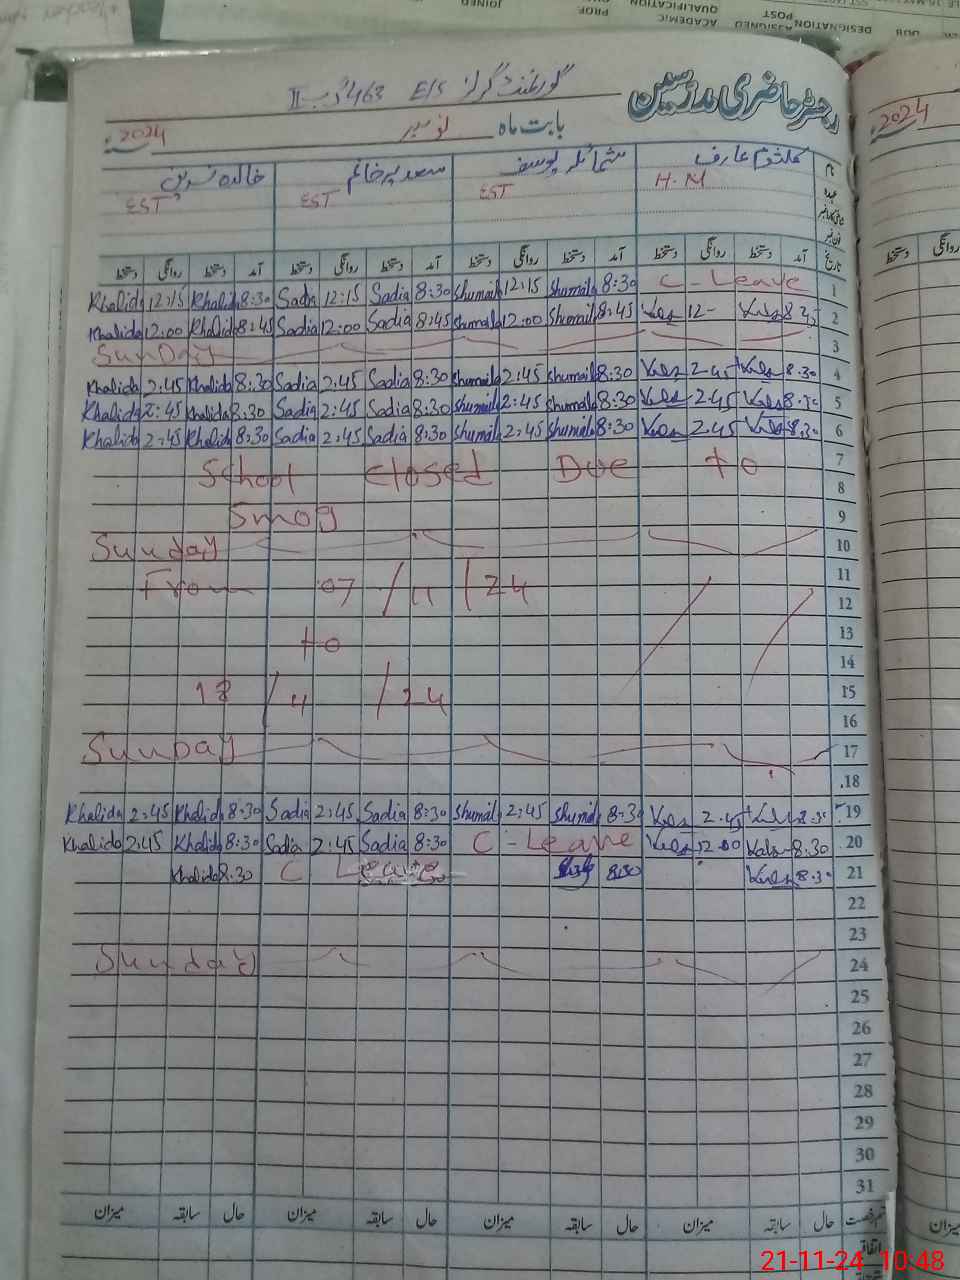 رجسٹر حاضری مدرسین
گورنمنٹ گرلز E/S 463 گ ب II
بابت ماہ نومبر 2024
نام کلثوم عارف شمائلہ یوسف سعدیہ خانم خالدہ نسرین
عہدہ H.M EST EST EST
تاریخ آمد دستخط روانگی دستخط آمد دستخط روانگی دستخط آمد دستخط روانگی دستخط آمد دستخط روانگی دستخط
Khalida 12:15 Khalida 8:30 Sadia 12:15 Sadia 8:30 Shumaila 12:15 Shumaila 8:30 C - Leave 1
Khalida 12:00 Khalida 8:45 Sadia 12:00 Sadia 8:45 Shumaila 12:00 Shumaila 8:45 Kals 12- Kals 8 45 2
SunDay 3
Khalida 2:45 Khalida 8:30 Sadia 2:45 Sadia 8:30 Shumaila 2:45 Shumaila 8:30 Kals 2-45 Kals 8:30 4
Khalida 2:45 Khalida 8:30 Sadia 2:45 Sadia 8:30 Shumaila 2:45 Shumaila 8:30 Kals 2.45 Kals 8:30 5
Khalida 2:45 Khalida 8:30 Sadia 2:45 Sadia 8:30 Shumaila 2:45 Shumaila 8:30 Kals 2.45 Kals 8:30 6
School closed Due to 7
8
Smog 9
Sunday 10
From 07 / 11 / 24 11
12
to 13
14
18 / 11 / 24 15
16
SunDay 17
18
Khalida 2:45 Khalida 8:30 Sadia 2:45 Sadia 8:30 Shumail 2:45 Shumail 8:30 Kals 2.45 Kals 8:30 19
Khalida 2:45 Khalida 8:30 Sadia 2:45 Sadia 8:30 C - Leave Kals 12.00 Kals 8:30 20
Khalida 8:30 C Leave 8:30 Kals 8:30 21
22
23
Sunday 24
25
26
27
28
29
30
31
حال سابقہ میزان حال سابقہ میزان حال سابقہ میزان حال سابقہ میزان
اتفاقیہ
21-11-24 10:48
2024
روانگی دستخط
میزان
DESIGNATION
POST
ASSIGNED
ACADEMIC
QUALIFICATION
PROF.
JOINED